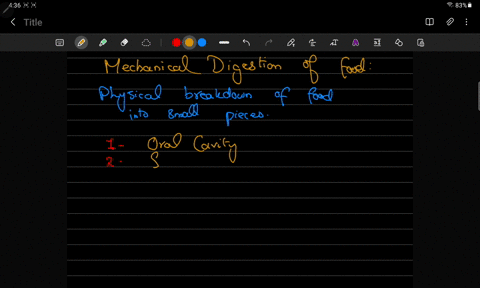 4:36
83%
Title
Mechanical Digestion of food:
Physical breakdown of food
into small pieces.
1- Oral Cavity
2- S